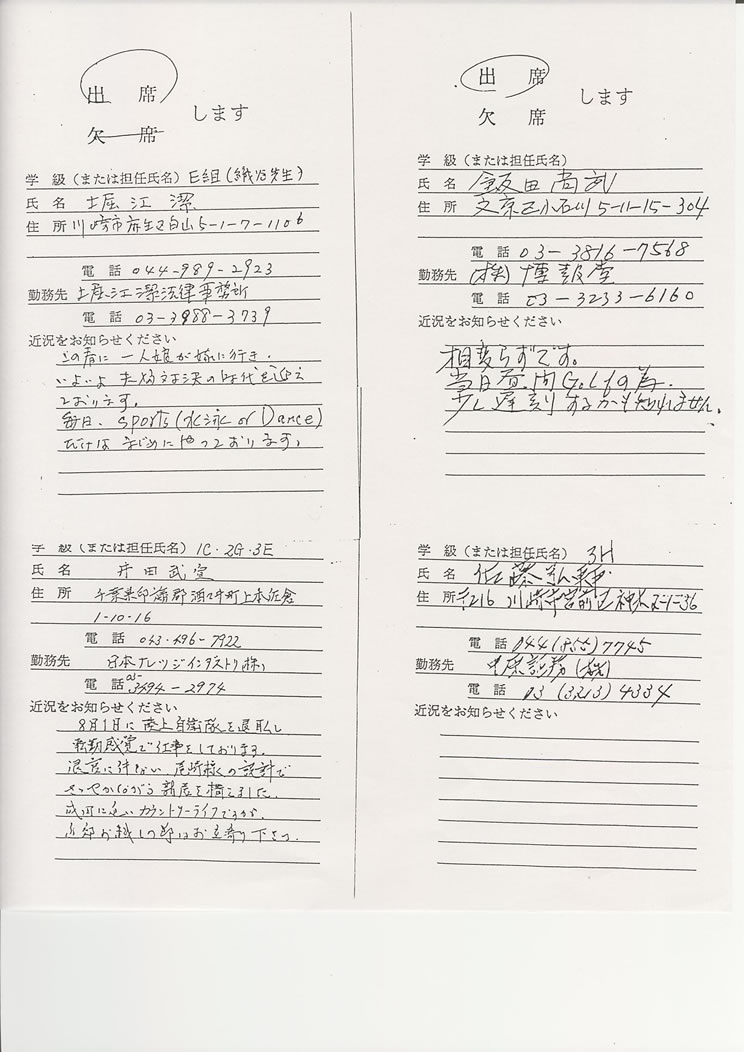 出 席
欠 席
します
学 級（または担任氏名）E組（織谷先生）
氏 名 堀江 潔
住 所 川崎市麻生区白山5-1-7-1106
電 話 044-989-2923
勤務先 堀江潔法律事務所
電 話 03-3988-3739
近況をお知らせください
この春に一人娘が嫁に行き、
いよいよ夫婦対決の時代を迎え
ております。
毎日、sports（水泳 or Dance）
だけはまじめにやっております。
出 席
欠 席
します
学 級（または担任氏名）
氏 名 飯田尚武
住 所 文京区小石川5-11-15-304
電 話 03-3816-7568
勤務先 （株）博報堂
電 話 03-3233-6160
近況をお知らせください
相変らずです。
当日昼間Golfの為、
少し遅刻するかも知れません。
学 級（または担任氏名）1C・2G・3E
氏 名 井田武
住 所 千葉県印旛郡酒々井町上本佐倉
1-10-16
電 話 043-496-7922
勤務先 日本
電 話 03-3494-2974
近況をお知らせください
8月1日に陸上自衛隊を退職し
転勤感覚で仕事をしております。
退官に伴ない、尾崎様の設計で
ささやかながら新居を構えました。
成田に近いカントリーライフですが、
お越しの節はお立寄り下さい。
学 級（または担任氏名）3H
氏 名 佐藤
住 所 〒216 川崎市宮前区神木2-1-36
電 話 044（）7745
勤務先 （株）
電 話 03（3213）4334
近況をお知らせください